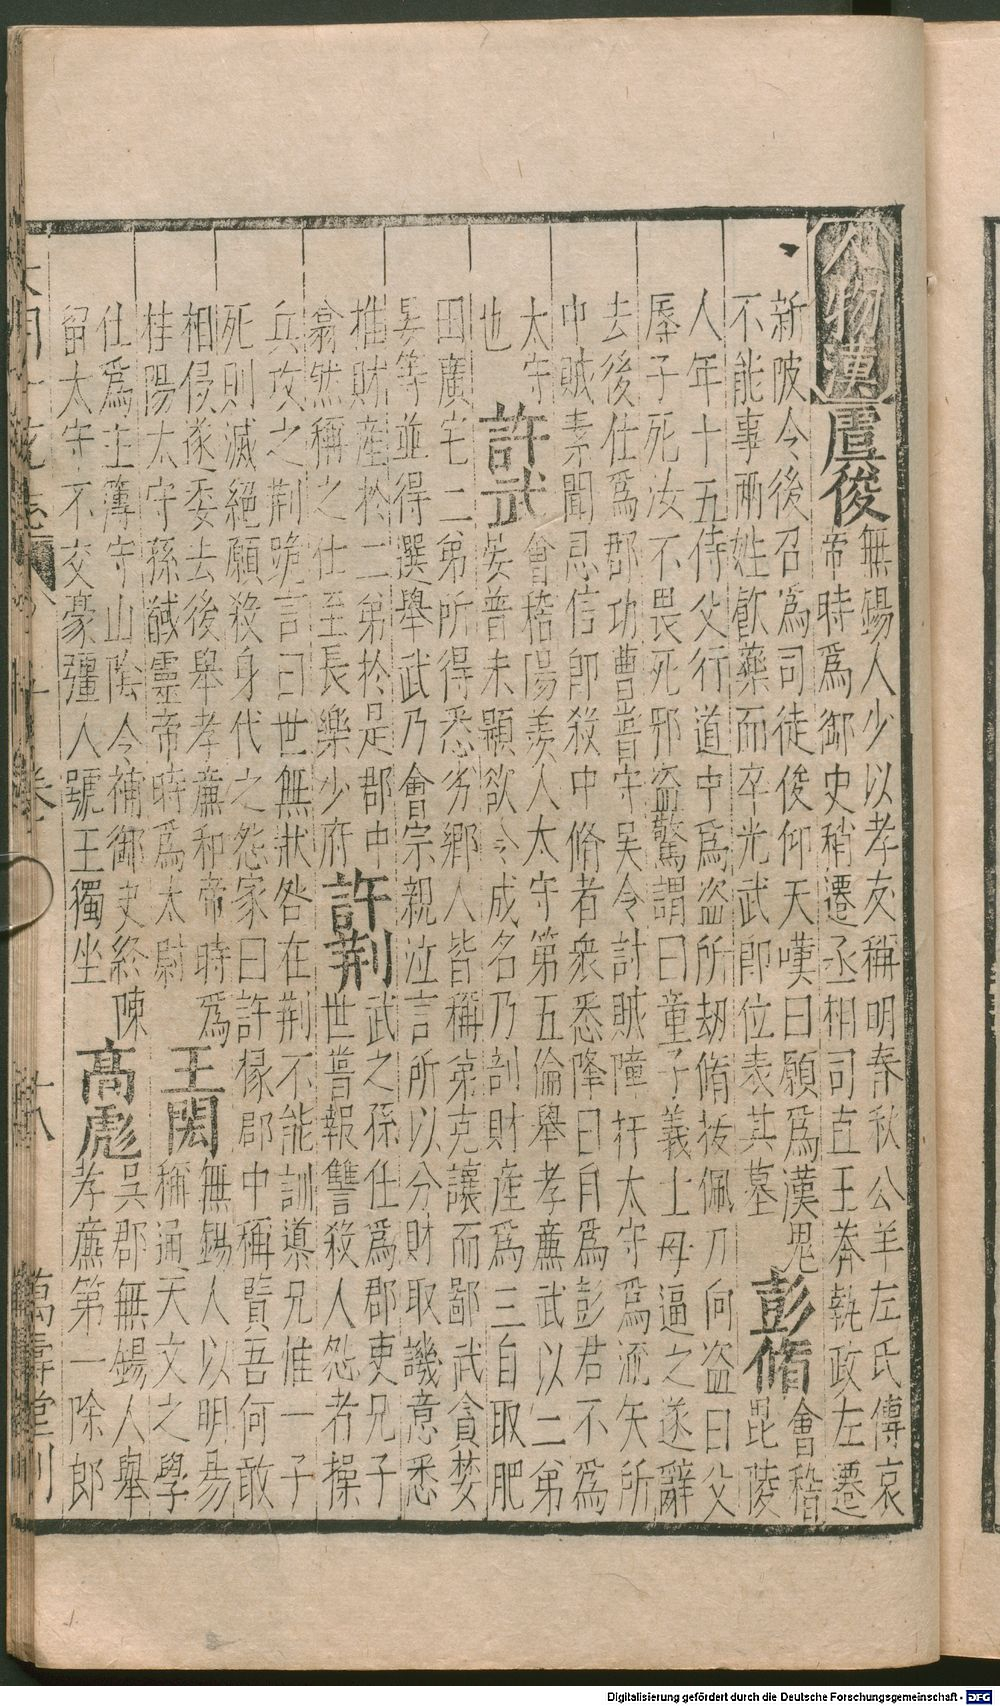 人物漢
虞俊
無錫人少以孝友稱明春秋公羊左氏傳哀
帝時爲御史稍遷丞相司直王莽執政左遷
新陂令後召爲司徒俊仰天嘆曰願爲漢鬼
不能事兩姓飲藥而卒光武即位表其墓
彭脩
會稽
毘陵
人年十五侍父行道中爲盗所刼脩拔佩刀向盗曰父
辱子死汝不畏死邪盗驚謂曰童子義士毋逼之遂辭
去後仕爲郡功曹甞守吳令討賊瞳扞太守爲流矢所
中賊素聞恩信即殺中脩者衆悉降曰自爲彭君不爲
太守
也
許武
會稽陽羡人太守第五倫舉孝亷武以二第
晏普未顯欲令成名乃剖財產爲三自取肥
田廣宅二第所得悉劣郷人皆稱第克讓而鄙武貪婪
晏等並得選舉武乃會宗親泣言所以分財取譏意悉
推財産於二第於是郡中
翕然稱之仕至長樂少府
許荆
武之孫仕爲郡吏兄子
世甞報讐殺人怨者操
兵攻之荆跪言曰世無狀咎在荆不能訓導兄惟一子
死則滅絕願殺身代之怨家曰許掾郡中稱賢吾何敢
相侵遂委去後舉孝亷和帝時爲
桂陽太守孫馘靈帝時爲太尉
王閎
無錫人以明昜
稱通天文之學
仕爲主簿守山陰令補御史終陳
留太守不交豪彊人號王獨坐
高彪
吳郡無錫人舉
孝亷第一除郎
大明一統志
十八
萬壽堂刊
Digitalisierung gefördert durch die Deutsche Forschungsgemeinschaft - DFG